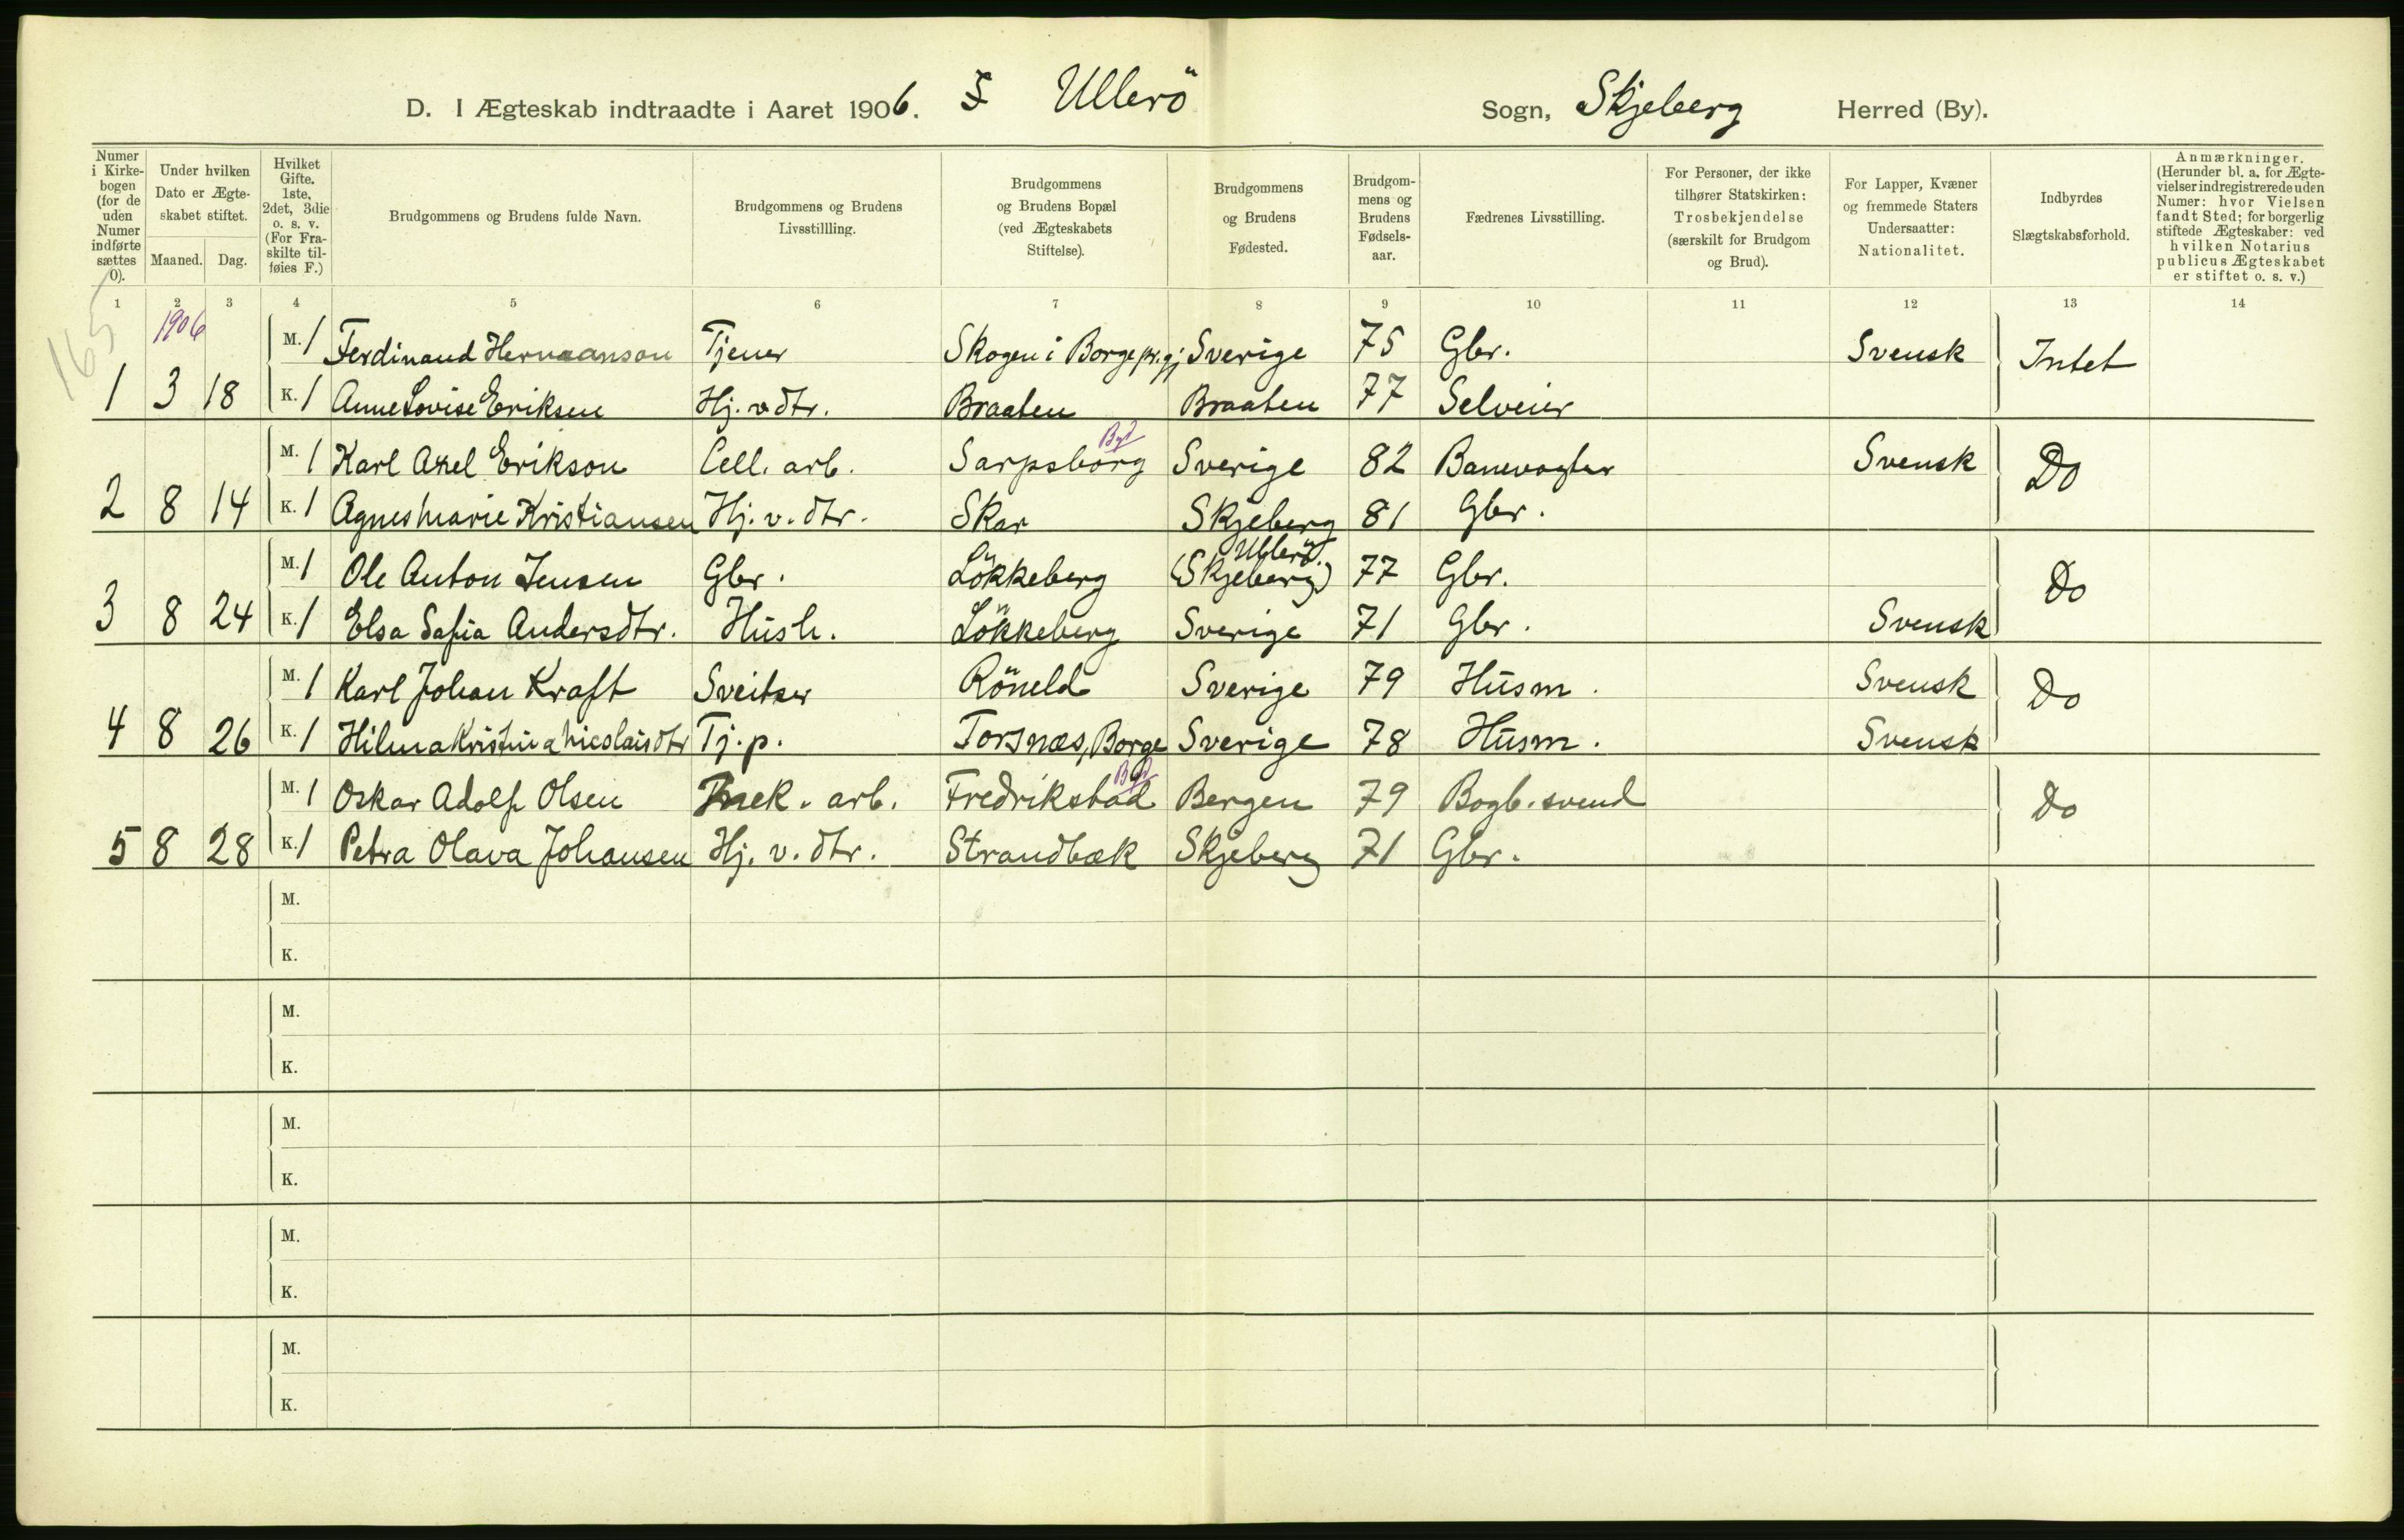 D. I Ægteskab indtraadte i Aaret 1906. Ullerö Sogn, Skjeberg Herred (By).
Numer i Kirkebogen (for de uden Numer indførte sættes 0).
Under hvilken Dato er Ægteskabet stiftet.
Maaned. Dag.
Hvilket Gifte. 1ste, 2det, 3die o. s. v. (For Fraskilte tilføies F.)
Brudgommens og Brudens fulde Navn.
Brudgommens og Brudens Livsstillling.
Brudgommens og Brudens Bopæl (ved Ægteskabets Stiftelse).
Brudgommens og Brudens Fødested.
Brudgommens og Brudens Fødselsaar.
Fædrenes Livsstilling.
For Personer, der ikke tilhører Statskirken: Trosbekjendelse (særskilt for Brudgom og Brud).
For Lapper, Kvæner og fremmede Staters Undersaatter: Nationalitet.
Indbyrdes Slægtskabsforhold.
Anmærkninger. (Herunder bl. a. for Ægtevielser indregistrerede uden Numer: hvor Vielsen fandt Sted; for borgerlig stiftede Ægteskaber: ved hvilken Notarius publicus Ægteskabet er stiftet o. s. v.)
1 2 3 4 5 6 7 8 9 10 11 12 13 14
165
1906
M. 1 Ferdinand Hermanson Tjener Skogen i Borge pr.gj Sverige 75 Gbr. Svensk Intet
1 3 18 K. 1 Anne Lovise Eriksen Hj. v dtr. Braaten Braaten 77 Selveier
Byd
M. 1 Karl Axel Erikson Cell. arb. Sarpsborg Sverige 82 Banevogter Svensk Do
2 8 14 K. 1 Agnes Marie Kristiansen Hj. v. dtr. Skar Skjeberg 81 Gbr.
Ullerö
M. 1 Ole Anton Jensen Gbr. Lökkeberg (Skjeberg) 77 Gbr. Do
3 8 24 K. 1 Elsa Safia Andersdtr. Hush. Lökkeberg Sverige 71 Gbr. Svensk
M. 1 Karl Johan Kraft Sveitser Röneld Sverige 79 Husm. Svensk Do
4 8 26 K. 1 Hilma Kristina Nicolaisdtr Tj. p. Torsnæs, Borge Sverige 78 Husm. Svensk
Byd
M. 1 Oskar Adolf Olsen mek. arb. Fredriksstad Bergen 79 Bogb. svend Do
5 8 28 K. 1 Petra Olava Johansen Hj. v. dtr. Strandbæk Skjeberg 71 Gbr.
M.
K.
M.
K.
M.
K.
M.
K.
M.
K.